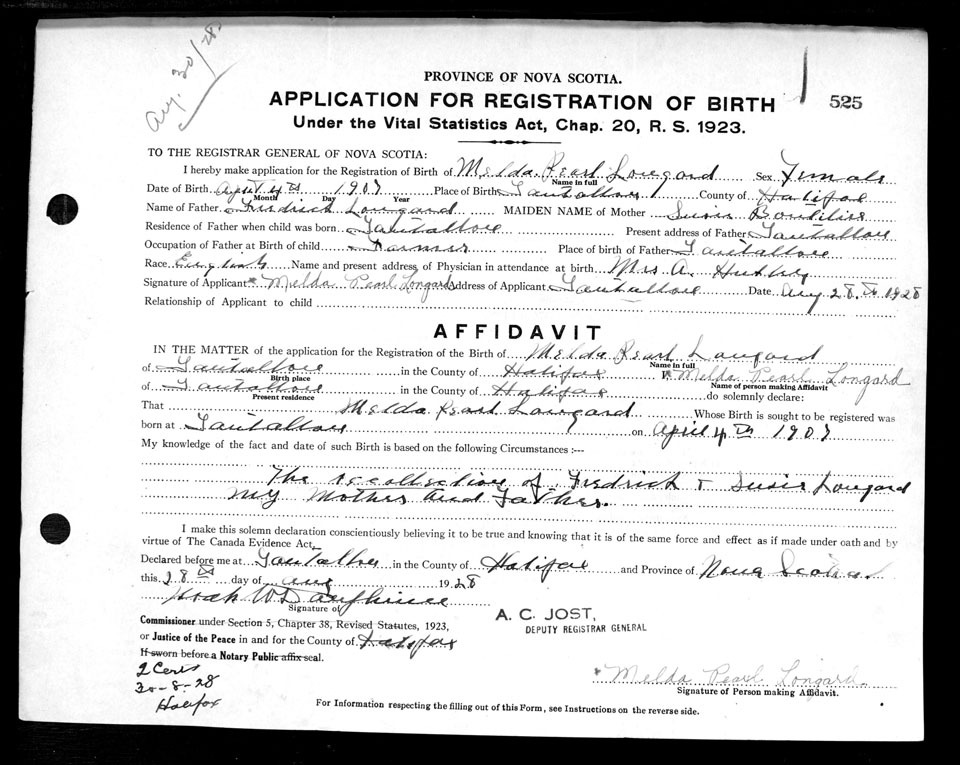 Aug. 30/28.
PROVINCE OF NOVA SCOTIA.
APPLICATION FOR REGISTRATION OF BIRTH
525
Under the Vital Statistics Act, Chap. 20, R. S. 1923.
TO THE REGISTRAR GENERAL OF NOVA SCOTIA:
I hereby make application for the Registration of Birth of Melda Pearl Longard Sex Female
Name in full
Date of Birth April 4th 1907 Place of Birth Tantallon County of Halifax
Month Day Year
Name of Father Fredrick Longard MAIDEN NAME of Mother Susie Boutilier
Residence of Father when child was born Tantallon Present address of Father Tantallon
Occupation of Father at Birth of child Farmer Place of birth of Father Tantallon
Race English Name and present address of Physician in attendance at birth Mrs A.
Signature of Applicant Melda Pearl Longard Address of Applicant Tantallon Date Aug 28th 1928
Relationship of Applicant to child
AFFIDAVIT
IN THE MATTER of the application for the Registration of the Birth of Melda Pearl Longard
Name in full
of Tantallon in the County of Halifax I, Melda Pearl Longard
Birth place
Name of person making Affidavit
of Tantallon in the County of Halifax do solemnly declare:
Present residence
That Melda Pearl Longard Whose Birth is sought to be registered was
born at Tantallon on April 4th 1907
My knowledge of the fact and date of such Birth is based on the following Circumstances :--
The recollection of Fredrick & Susie Longard
my Mother and Father.
I make this solemn declaration conscientiously believing it to be true and knowing that it is of the same force and effect as if made under oath and by
virtue of The Canada Evidence Act,
Declared before me at Tantallon in the County of Halifax and Province of Nova Scotia
this 28th day of Aug 1928
Noah W Dauphinee
Signature of
A. C. JOST,
DEPUTY REGISTRAR GENERAL
Commissioner under Section 5, Chapter 38, Revised Statutes, 1923,
or Justice of the Peace in and for the County of Halifax
If sworn before a Notary Public affix seal.
2 Certs
30-8-28
Halifax
Melda Pearl Longard
Signature of Person making Affidavit.
For Information respecting the filling out of this Form, see Instructions on the reverse side.